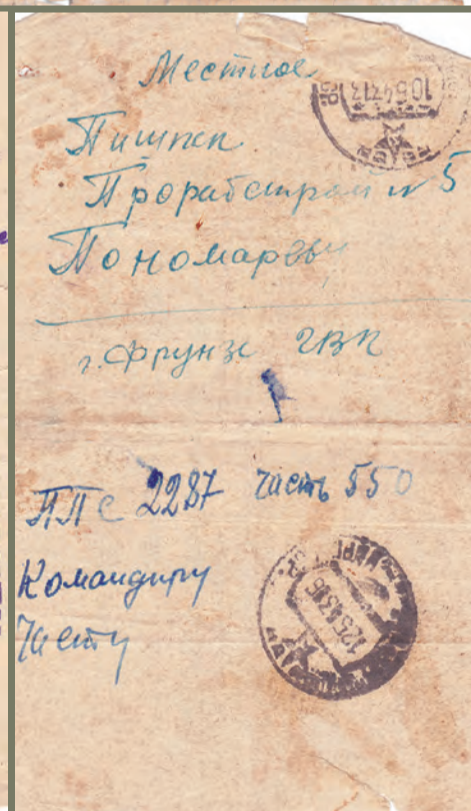 Местное
Пишпек
Прорабстрой № 5
Пономаревы
г. Фрунзе ГВК
ППС 2287 часть 550
Командиру
Части